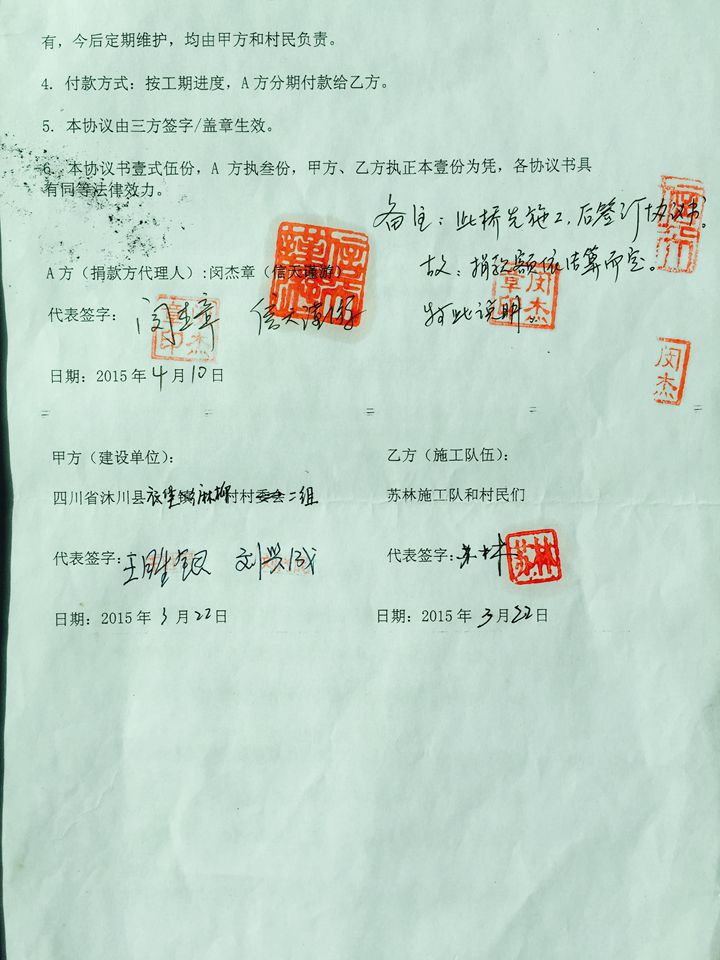 有，今后定期维护，均由甲方和村民负责。
4. 付款方式：按工期进度，A方分期付款给乙方。
5. 本协议由三方签字/盖章生效。
6. 本协议书壹式伍份，A 方执叁份，甲方、乙方执正本壹份为凭，各协议书具
有同等法律效力。
备注：此桥先施工，后签订协议书。
故：捐款额依结算而定。
特此说明
A方（捐款方代理人）:闵杰章（信天谨游）
代表签字： 闵杰章 信天谨游
闵杰章印
日期：2015年4月10日
= = = = =
闵杰
甲方（建设单位）：
乙方（施工队伍）：
四川省沐川县 村村委会二组
苏林施工队和村民们
代表签字：王胜银 刘兴成
代表签字：苏林
苏林
日期：2015年3月22日
日期：2015年3月22日